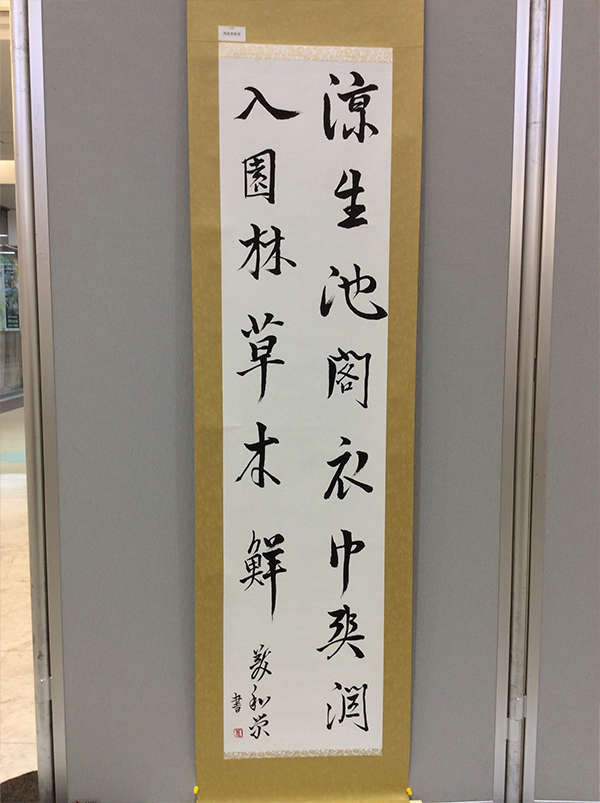 涼生池閣衣巾爽潤
入園林草木鮮
美和栄
書